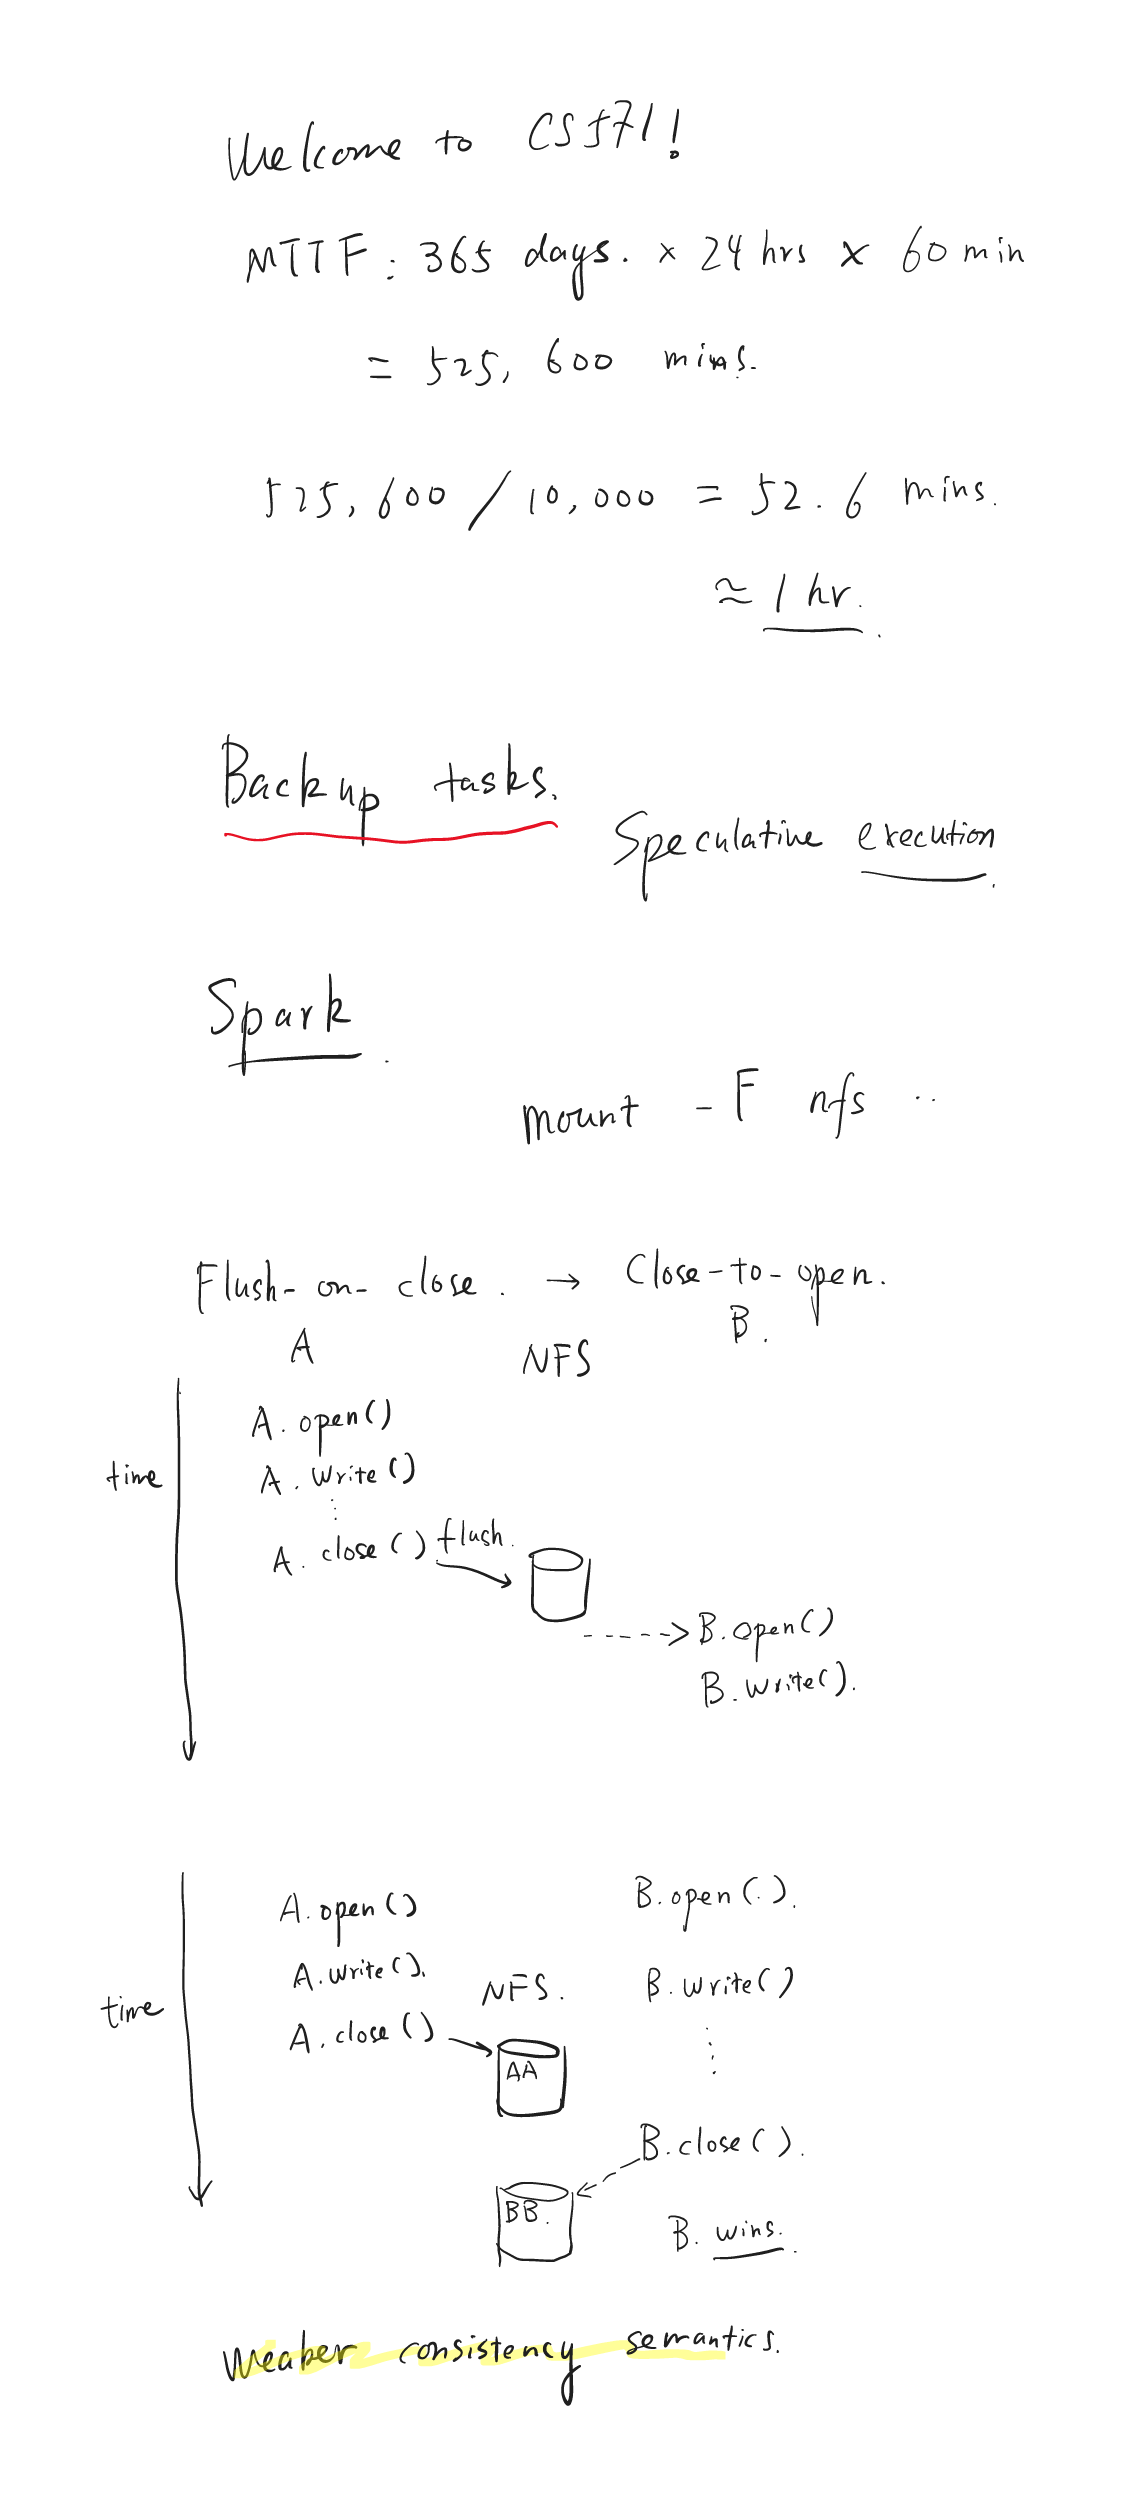 Welcome to CS571!
MTTF: 365 days. × 24 hrs × 60 min
= 525,600 mins.
525,600 / 10,000 = 52.6 mins.
≈ 1 hr.
Backup tasks.
Speculative execution.
Spark.
mount -F nfs ..
Flush-on-close. → Close-to-open.
A NFS B.
A. open()
time
A. write()
A. close() flush.
B. open()
B. write().
A. open() B. open().
A. write(). NFS. B. write()
time
A. close()
AA
B. close().
BB.
B. wins.
Weaker consistency semantics.